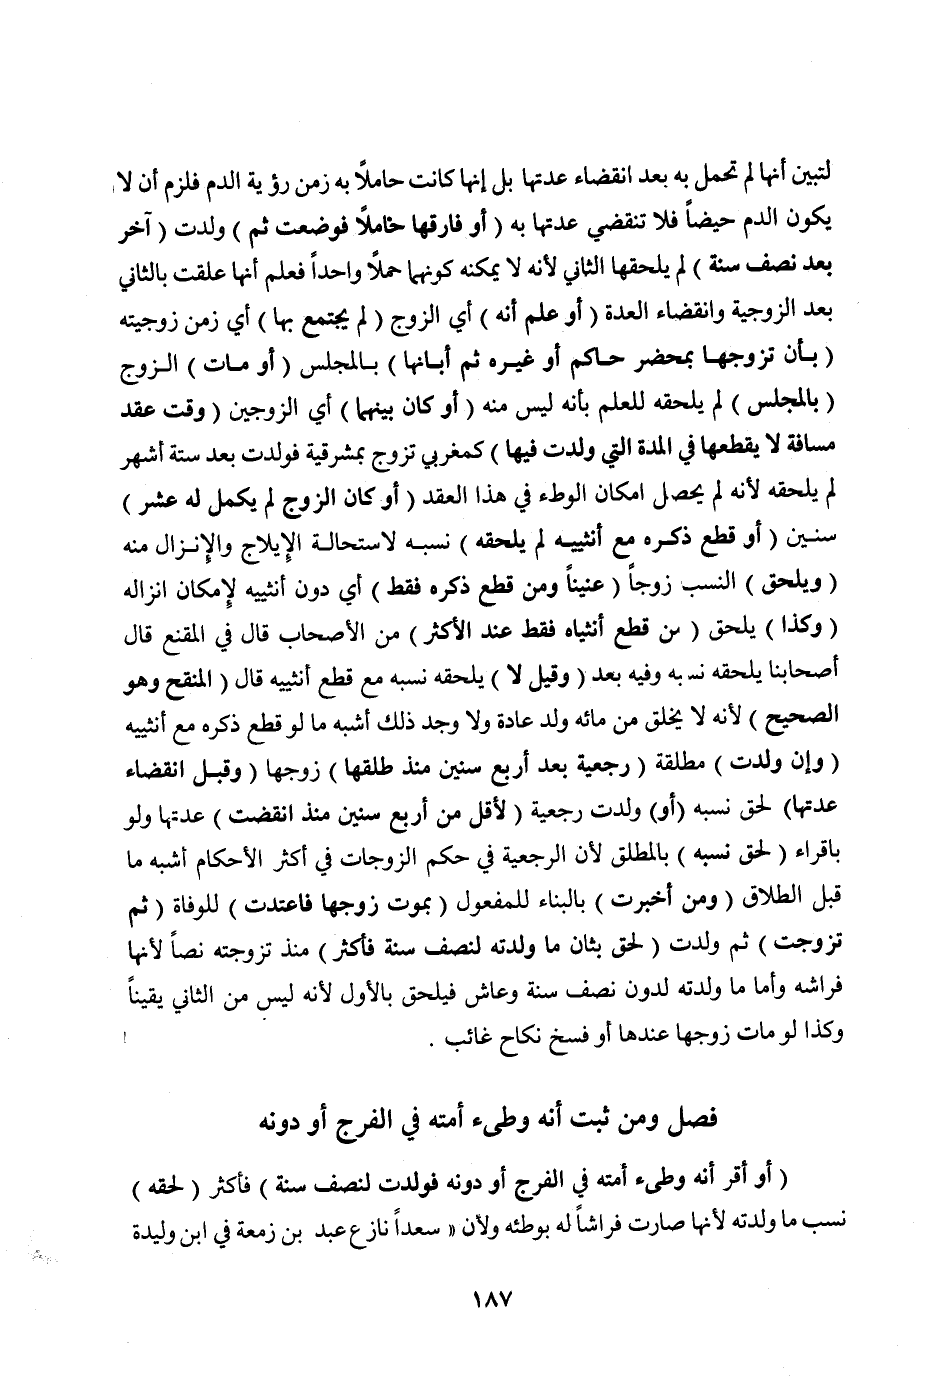 لتبين أنها لم تحمل به بعد انقضاء عدتها بل إنها كانت حاملاً به زمن رؤية الدم فلزم أن لا
يكون الدم حيضاً فلا تنقضي عدتها به ( أو فارقها حاملاً فوضعت ثم ) ولدت ( آخر
بعد نصف سنة ) لم يلحقها الثاني لأنه لا يمكنه كونهما حملاً واحداً فعلم أنها علقت بالثاني
بعد الزوجية وانقضاء العدة ( أو علم أنه ) أي الزوج ( لم يجتمع بها ) أي زمن زوجيته
( بأن تزوجها بمحضر حاكم أو غيره ثم أبانها ) بالمجلس ( أو مات ) الزوج
( بالمجلس ) لم يلحقه للعلم بأنه ليس منه ( أو كان بينهما ) أي الزوجين ( وقت عقد
مسافة لا يقطعها في المدة التي ولدت فيها ) كمغربي تزوج بمشرقية فولدت بعد ستة أشهر
لم يلحقه لأنه لم يحصل امكان الوطء في هذا العقد ( أو كان الزوج لم يكمل له عشر )
سنين ( أو قطع ذكره مع أنثييه لم يلحقه ) نسبه لاستحالة الإيلاج والإنزال منه
( ويلحق ) النسب زوجاً ( عنيناً ومن قطع ذكره فقط ) أي دون أنثييه لإمكان انزاله
( وكذا ) يلحق ( من قطع أنثياه فقط عند الأكثر ) من الأصحاب قال في المقنع قال
أصحابنا يلحقه نسبه وفيه بعد ( وقيل لا ) يلحقه نسبه مع قطع أنثييه قال ( المنقح وهو
الصحيح ) لأنه لا يخلق من مائه ولد عادة ولا وجد ذلك أشبه ما لو قطع ذكره مع أنثييه
( وإن ولدت ) مطلقة ( رجعية بعد أربع سنين منذ طلقها ) زوجها ( وقبل انقضاء
عدتها) لحق نسبه (أو) ولدت رجعية ( لأقل من أربع سنين منذ انقضت ) عدتها ولو
باقراء ( لحق نسبه ) بالمطلق لأن الرجعية في حكم الزوجات في أكثر الأحكام أشبه ما
قبل الطلاق ( ومن أخبرت ) بالبناء للمفعول ( بموت زوجها فاعتدت ) للوفاة ( ثم
تزوجت ) ثم ولدت ( لحق بثان ما ولدته لنصف سنة فأكثر ) منذ تزوجته نصاً لأنها
فراشه وأما ما ولدته لدون نصف سنة وعاش فيلحق بالأول لأنه ليس من الثاني يقيناً
وكذا لو مات زوجها عندها أو فسخ نكاح غائب .
فصل ومن ثبت أنه وطىء أمته في الفرج أو دونه
( أو أقر أنه وطىء أمته في الفرج أو دونه فولدت لنصف سنة ) فأكثر ( لحقه )
نسب ما ولدته لأنها صارت فراشاً له بوطئه ولأن « سعداً نازع عبد بن زمعة في ابن وليدة
١٨٧